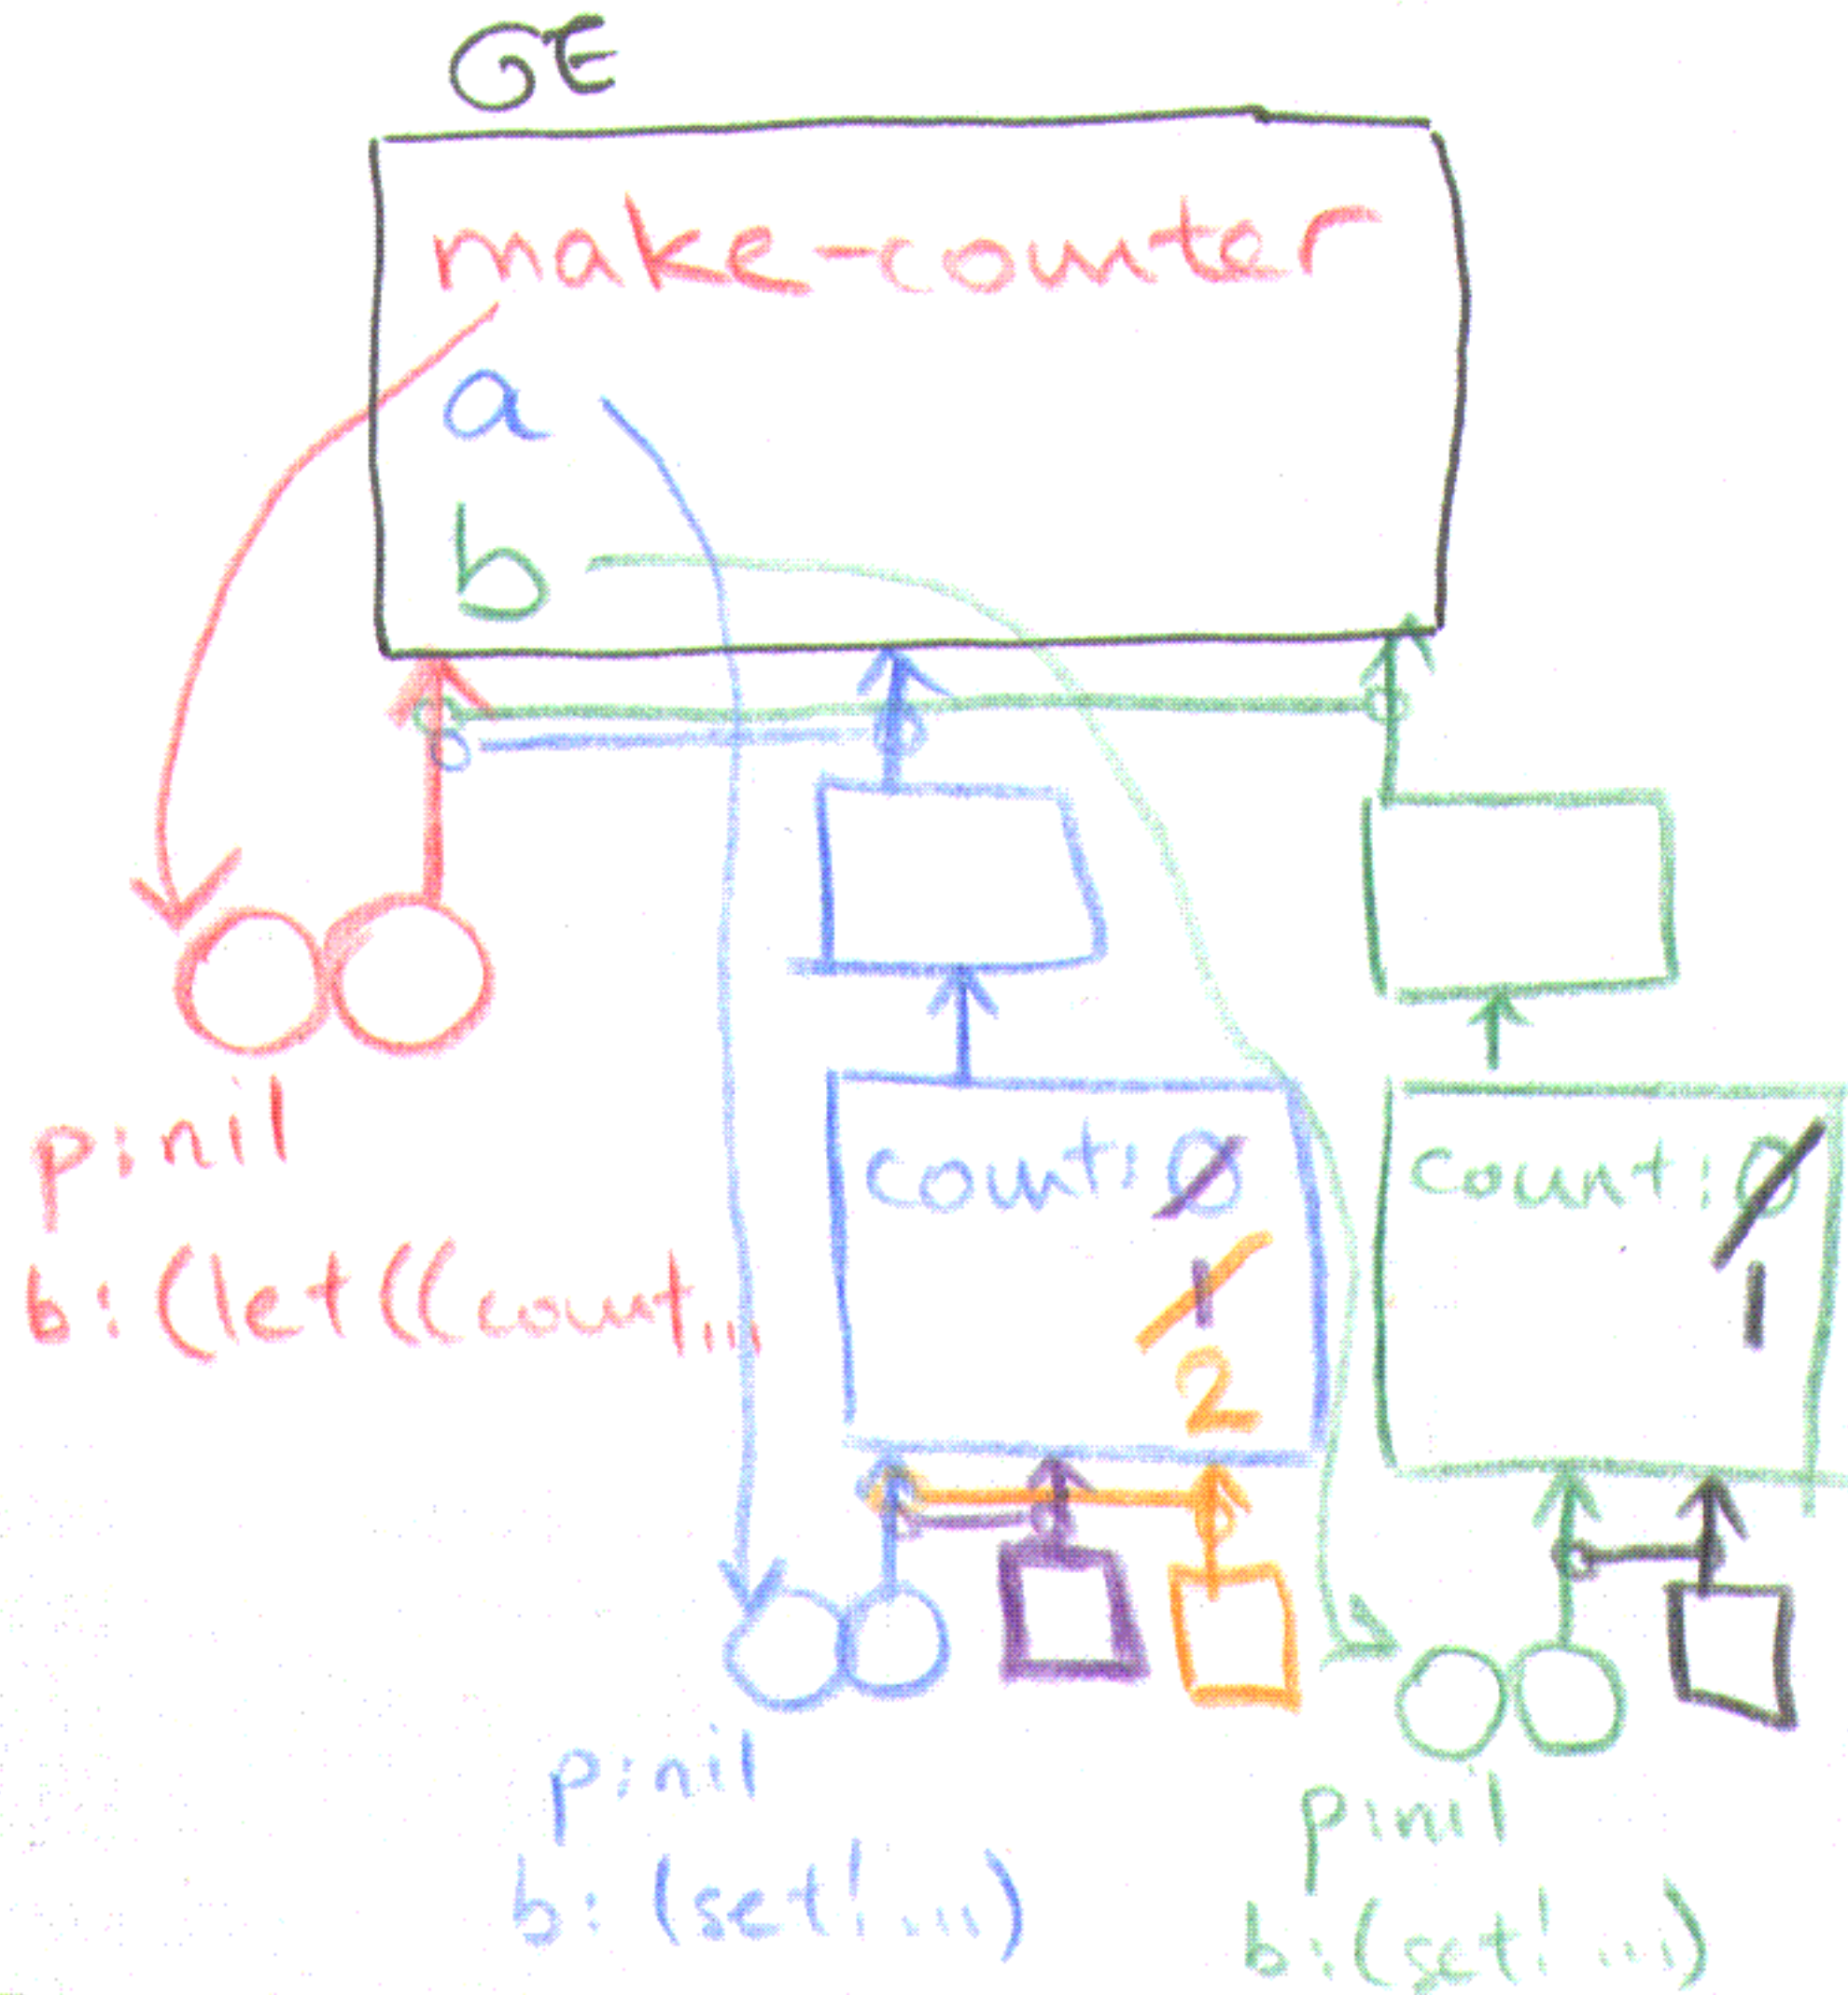 GE
make-counter
a
b
p:nil
b: (let ((count...
count: 0
1
2
count: 0
1
p:nil
b: (set! ...)
p:nil
b: (set! ...)